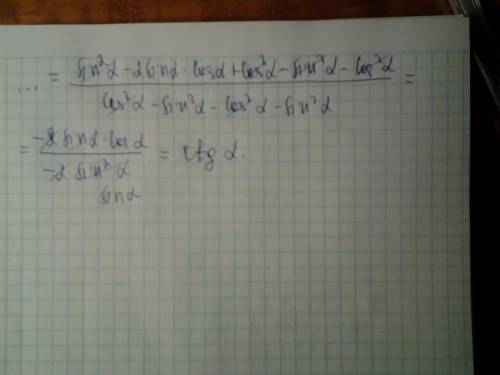 ... = (sin²α - 2sinα · cosα + cos²α - sin²α - cos²α) / (cos²α - sin²α - cos²α - sin²α) =
= (-2 sinα · cosα) / (-2 sin²α) = ctg α.
sinα